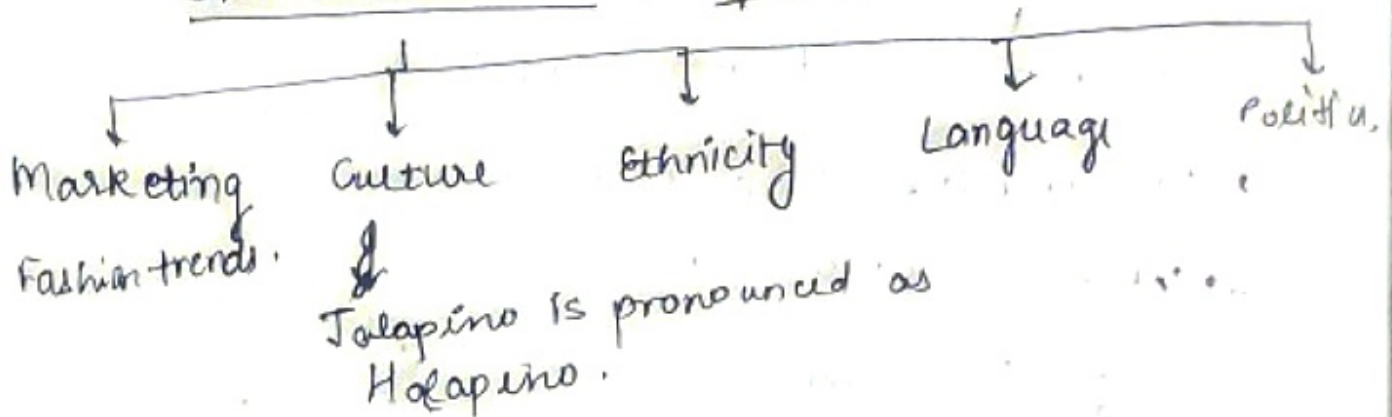 Marketing Culture Ethnicity Language
Fashion trends.
Jalapino is pronounced as
Holapino.